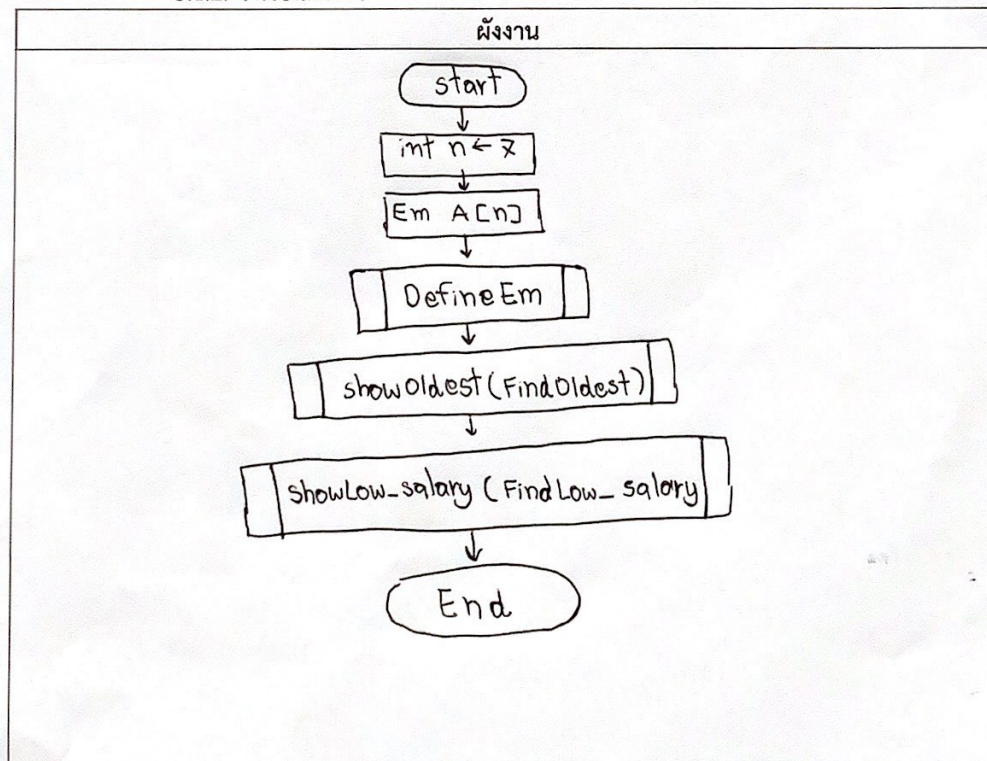 ผังงาน
start
int n ← 7
Em A[n]
Define Em
showOldest(FindOldest)
showLow_salary (FindLow_ salary
End